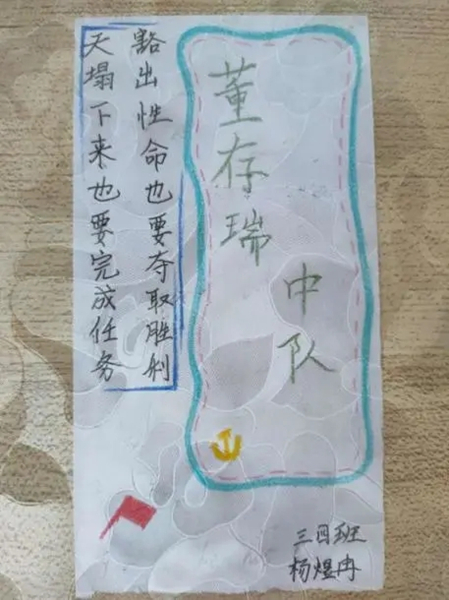 董存瑞
中队
豁出性命也要夺取胜利
天塌下来也要完成任务
三四班
杨煜冉